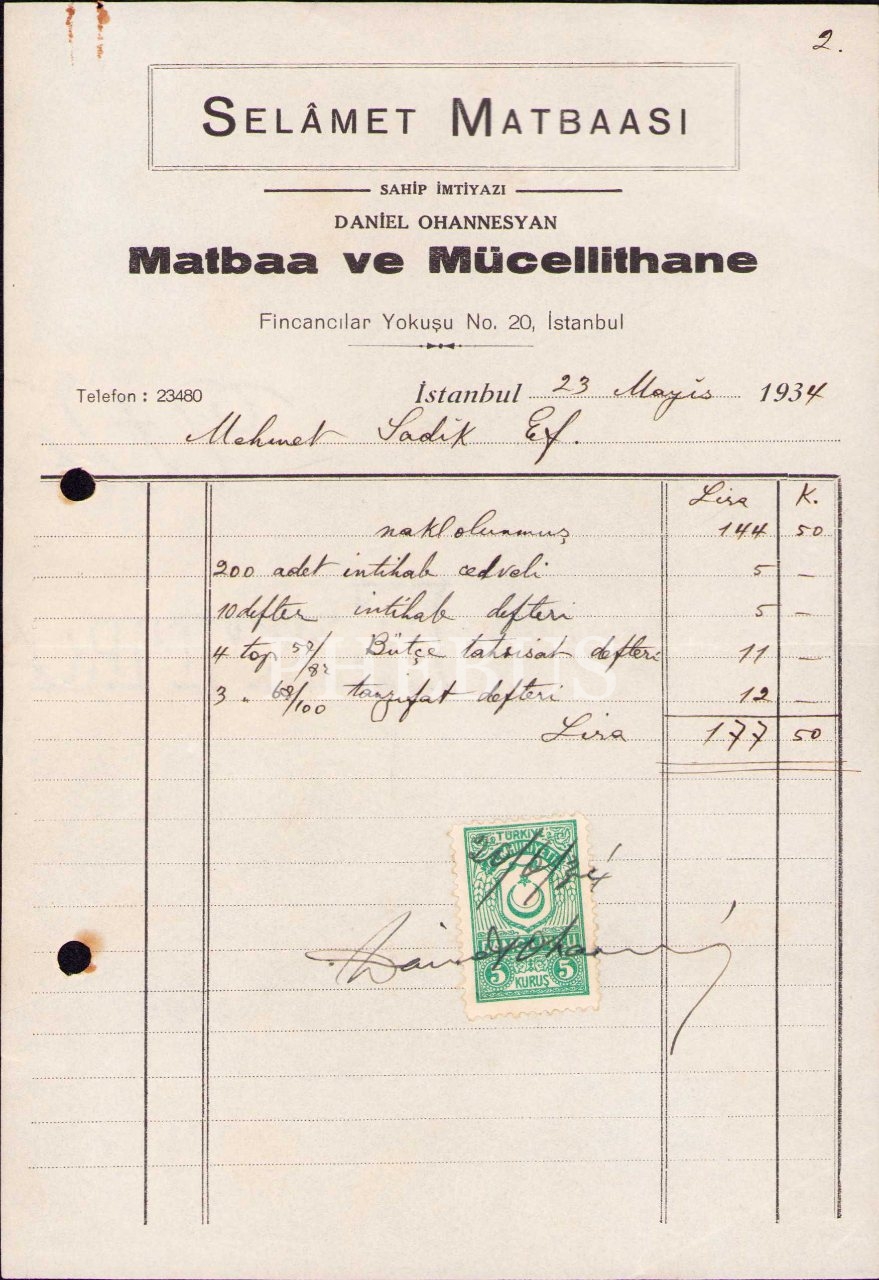 2.
SELÂMET MATBAASI
SAHİP İMTİYAZI
DANİEL OHANNESYAN
Matbaa ve Mücellithane
Fincancılar Yokuşu No. 20, İstanbul
Telefon : 23480
İstanbul 23 Mayıs 1934
Mehmet Sadik Ef.
Lira K.
naklolunmuş 144 50
200 adet intihab cedveli 5 —
10 defter intihab defteri 5 —
4 top Bütçe tahsisat defteri 11 —
3 " 68/100 defteri 12 —
Lira 177 50
TÜRKİYE
CUMHURİYETİ
5 KURUŞ 5
PHEBUS